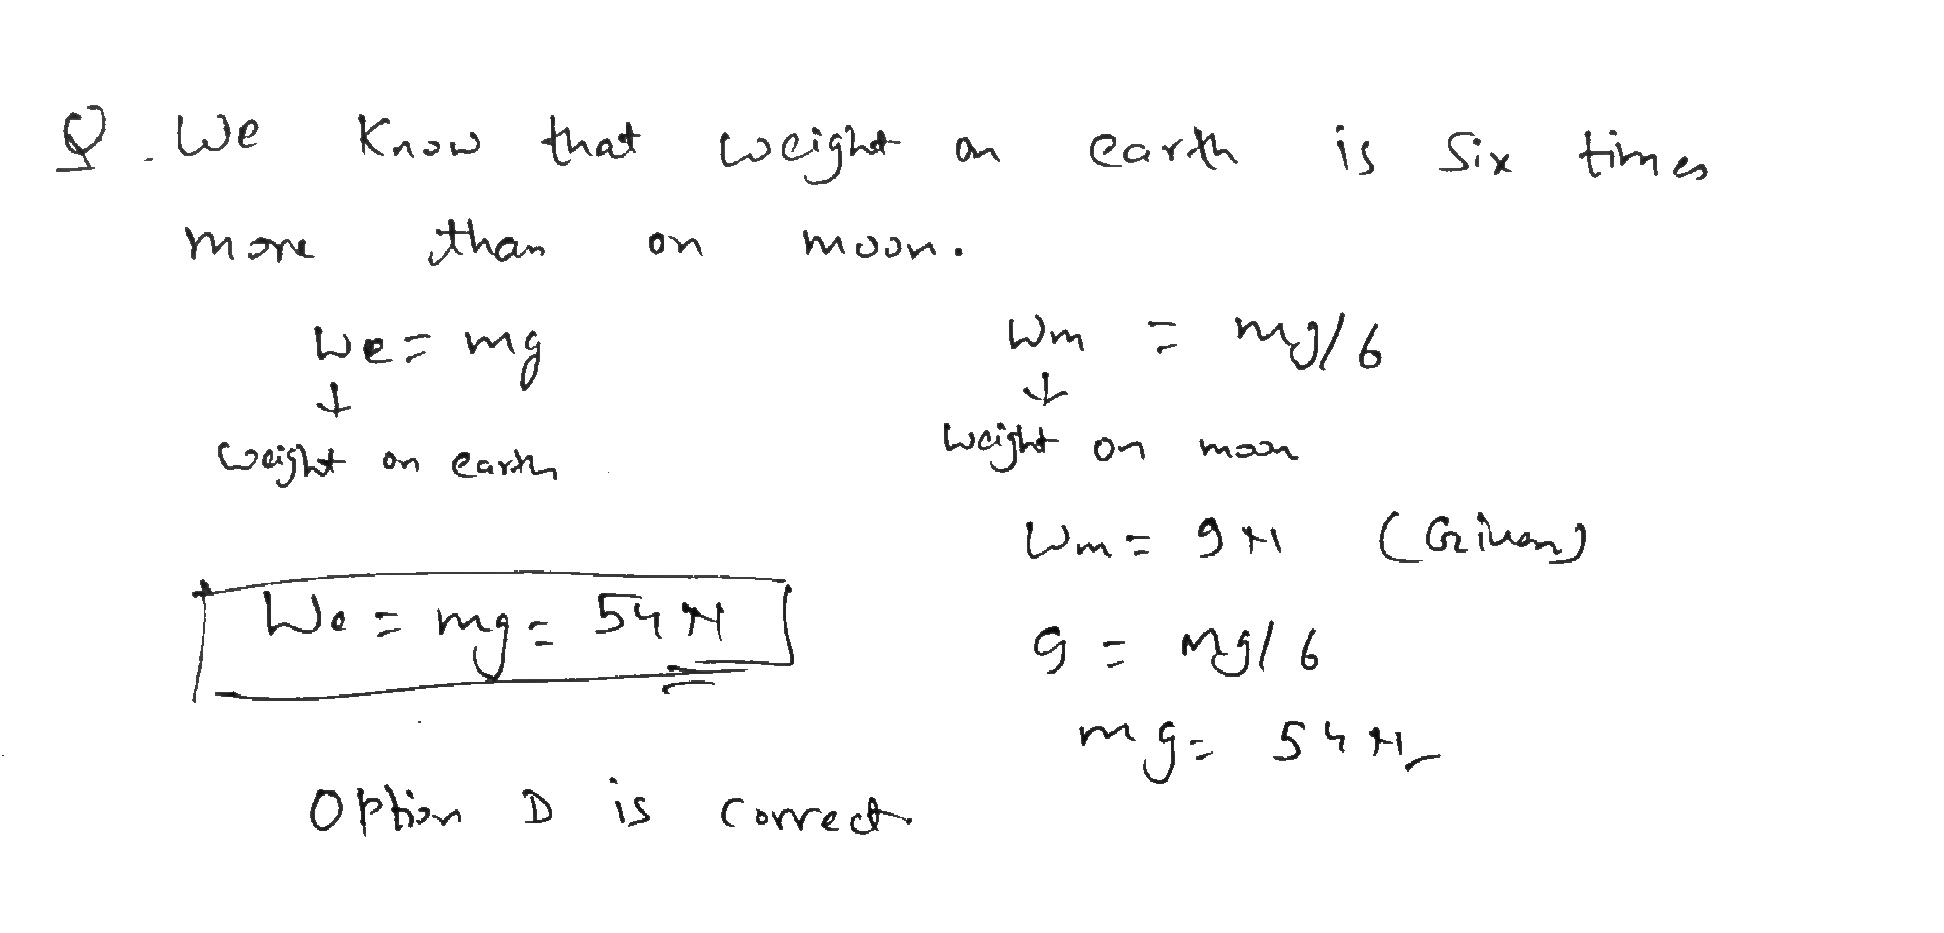 Q. We know that weight on earth is six times
more than on moon.
We = mg
↓
weight on earth
Wm = mg/6
↓
Weight on moon
Wm = 9N (Given)
9 = mg/6
mg = 54 N
We = mg = 54 N
Option D is correct.